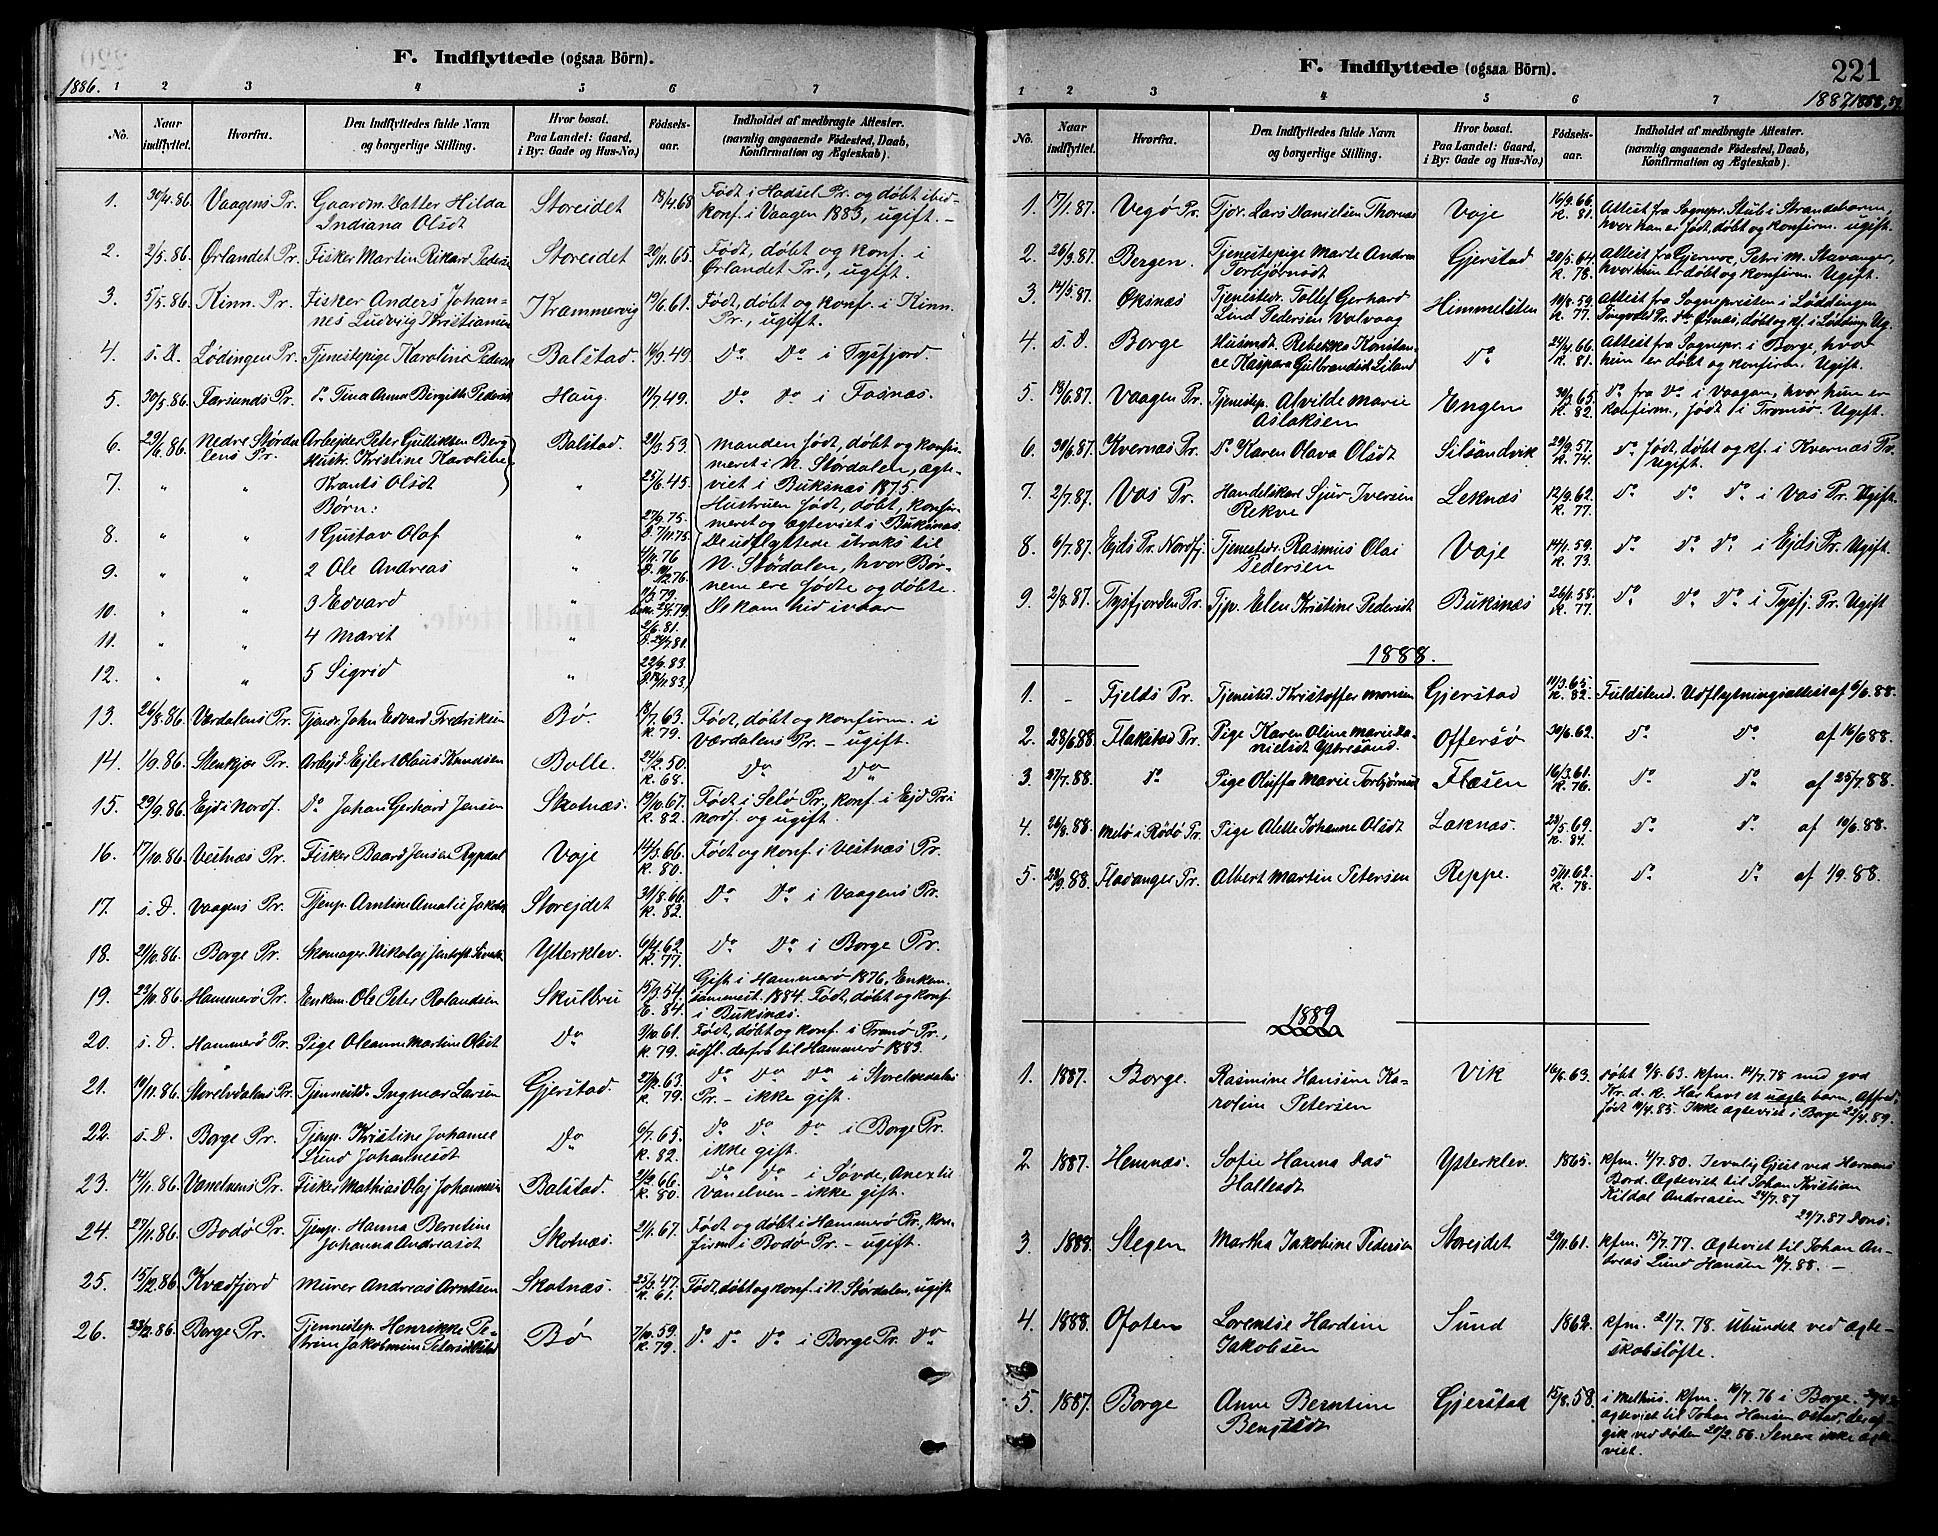 F. Indflyttede (ogsaa Börn).
1886. 1 2 3 4 5 6 7
No. Naar indflyttet. Hvorfra. Den Indflyttedes fulde Navn og borgerlige Stilling. Hvor bosat. Paa Landet: Gaard, i By: Gade og Hus-No.) Fødsels-aar. Indholdet af medbragte Attester. (navnlig angaaende Fødested, Daab, Konfirmation og Ægteskab.)
1. 30/4.86. Vaagens Pr. Gaardm. Datter Hilda Indiana Olsdt Storeidet 18/4.68 Født i Hadsel Pr. og døbt ibid- konf. i Vaagen 1883, ugift. -
2. 2/5.86. Ørlandet Pr. Fisker Martin Rikard Pedersen Storeidet 20/11.65. Født, døbt og konf. i Ørlandet Pr., ugift.
3. 5/5.86. Kinn. Pr. Fisker Anders Johan- nes Ludvig Kristiansen Krammervig 19/6.61. Født, døbt og konf. i Kinn. Pr., ugift.
4. s. D. Lødingen Pr. Tjenestepige Karolina Pedersdt Balstad. 16/9.49. Do Do i Tysfjord.
5. 30/5.86. Farsunds Pr. do Tina Anna Birgitte Pedersdt Haug. 14/7.49. Do Do i Fosnæs.
6. 29/6.86. Nedre Størda- lens Pr. Arbejder Peter Gulliksen Berg Balstad. 20/3.53. Manden født, døbt og konfir- meret i N. Størdalen, ægte-
7. " " Hustr. Kristine Karoline Krants Olsdt " 25/6.45. viet i Buksnæs 1875. Hustruen født, døbt, konfir-
Børn:
8. " " 1 Gustav Olaf " 27/9.75. D. 7/11.75. meret og ægteviet i Buksnæs. De udflyttede straks til
9. " " 2 Ole Andreas " 4/11.76 N. Størdalen, hvor Bør-
10. " " 3 Edvard " nene ere fødte og døbte. De kom hid ivaar
11. " " 4 Marit " 2/6.81.
12. " " 5 Sigrid " 22/9.83. D. 18/11.83.
13. 26/8.86. Værdalens Pr. Tjendr. John Edvard Fredriksen Bø. 18/7.63. k. 79. Født, døbt og konfirm. i Værdalens Pr. - ugift.
14. 1/9.86. Stenkjær Pr. Arbejd. Ejlert Olaus Knudsen Bolle. 21/2.50. k. 68. Do Do
15. 29/9.86. Ejd i Nordf. Do Johan Gerhard Jensen Skotnæs. 19/10.67. k. 82. Født i Selø Pr., konf. i Ejd Pr. i Nordf. og ugift.
16. 17/10.86. Vestnæs Pr. Fisker Baard Jensen Rypdal Voje 14/3.66. k. 80. Født og konf. i Vestnæs Pr.
17. s. D. Vaagens Pr. Tjenp. Arntine Amalie Jakobsdt Storejdet 31/8.66. k. 82. Do Do i Vaagens Pr.
18. 21/10.86. Borge Pr. Skomager. Nikolaj Jentoft Ytterklev. 6/4.62. k. 77. Do Do i Borge Pr.
19. 23/10.86. Hammerø Pr. Enkem. Ole Peter Rolandsen Skulbru 15/3.54. E. 84. Gift i Hammerø 1876, Enkem. sammest. 1884. Født, døbt og konf. i Buksnæs.
20. s. D. Hammerø Pr. Pige Oleanna Martine Olsdt Do 3/10.61. k. 79. Født, døbt og konf. i Tranø Pr., udfl. derfra til Hammerø 1883.
21. 19/11.86. Storelvdalens Pr. Tjenestd. Ingmar Larsen Gjerstad. k. 79. Do Do Do i Storelvedalens Pr. - ikke gift.
22. s. D. Borge Pr. Tjenp. Kristine Johanne Lund Johannesdt Do 6/7.65. k. 82. Do Do Do i Borge Pr. ikke gift.
23. 14/11.86. Vanelvens Pr. Fisker Mathias Olaj Johannesen Balstad. 21/2.66. k. 80. Do Do i Søvde, Anex til Vanelven - ikke gift.
24. 27/11.86. Bodø Pr. Tjenp. Hanna Berntine Johanna Andreasdt Skotnæs. 21/1.67. Født og døbt i Hammerø Pr., kon- firm. i Bodø Pr. - ugift.
25. 15/12.86. Kvædfjord Murer Andreas Arntsen Skotnæs. 25/3.47. k. 61. Født, døbt og konf. i N. Størdalen, ugift
26. 23/12.86. Borge Pr. Tjennestep. Henrikke Pe- trine Jakobmine Bø 7/10.59. k. 79. Do Do Do i Borge Pr. Do
F. Indflyttede (ogsaa Börn). 221
1 2 3 4 5 6 7 1887, 1888, 89
No. Naar indflyttet. Hvorfra. Den Indflyttedes fulde Navn og borgerlige Stilling. Hvor bosat. Paa Landet: Gaard, i By: Gade og Hus-No.) Fødsels-aar. Indholdet af medbragte Attester. (navnlig angaaende Fødested, Daab, Konfirmation og Ægteskab.)
1. 17/1.87. Vegø Pr. Tjdr. Lars Danielsen Thornæs Voje 16/9.66. k. 81. Attest fra Sognepr. Stub i Strandebarm, hvor han er født, døbt og konfirm. ugift.
2. 26/3.87. Bergen. Tjenestepige Marte Andrea Torbjørnsdt Gjerstad 20/5.64. k. 78. Attest fra Gjernøe, Petri M. Stavanger, hvor hun er døbt og konfirm. Ugift.
3. 14/5.87. Øksnæs Tjenestedr. Tollef Gerhard Lind Pedersen Valvaag Himmelsten 10/8.59. k. 77. Attest fra Sognepresten i Lødingen døbt og kf. i Løddings. Ug.
4. s. D. Borge Husmdt. Rebekka Konstan- ce Kaspara Gulbrandsdt Liland Do 24/4.66. k. 81. Attest fra Sognepr. i Borge, hvor hun er døbt og konfirm. Ugift.
5. 18/6.87. Vaagen Pr. Tjenestep. Alvilde Marie Aslaksen Engen 30/3.65. k. 82. Do fra Do i Vaagan, hvor hun er konfirm., født i Tromsø. Ugift.
6. 30/6.87. Kvernæs Pr. Do Karen Olava Olsdt Silsandvik 29/9.57. k. 74. Do født, døbt og kf. i Kvernæs Pr. Ugift.
7. 2/7.87. Vos Pr. Handelskarl Sjur Iversen Rekve Leknæs 12/9.62. k. 77. Do Do Do i Vos Pr. Ugift.
8. 6/7.87. Ejds Pr. Nordfj. Tjenestedr. Rasmus Olai Pedersen Voje 14/1.59. k. 73. Do Do Do i Ejds Pr. Ugift.
9. 2/8.87. Tysfjorden Pr. Tjp. Elen Kristine Pedersdt Buksnæs 26/1.58. k. 77. Do Do Do i Tysfj. Pr. Ugift
1888.
1. - Fjelds Pr. Tjenestd. Kristoffer Monsen Gjerstad 10/3.65. k. 82. Fuldstend. Udflytningsattest af 6/6.88.
2. 28/6.88. Flakstad Pr. Pige Karen Oline Marie Da- nielsdt Ytresand. Offersø 30/6.62. Do Do af 16/6 88.
3. 27/7.88. Do Pige Oluffa Marie Torbjørnsdt Flæsen 16/3.61. k. 76. Do Do af 25/7.88.
4. 26/8.88. Melø i Rødø Pr. Pige Alette Johanne Olsdt Laknæs. 23/5.69. k. 84. Do Do af 19/6.88.
5. 28/9.88. Flavanger Pr. Albert Martin Petersen Reppe. 5/11.62. k. 78. Do Do af 1/9.88.
1889
1. 1887. Borge. Rasmine Hansine Ka- roline Petersen Vik 16/6.63. døbt 9/8.63. kfm. 14/7.78 med god Kr. d. k. Har havt et uægte barn, Alfred, født 10/4.85. Ikke ægteviet i Borge 29/4.89.
2. 1887. Hemnæs. Sofie Hanna Das Hallesdt Ytterklev. 1865. kfm. 4/7.80. Jevnlig Gjest ved Harrens Bord. Ægteviet til Johan Kristian Kildal Andreasen 24/7.87 29/7.87 Dons.
3. 1888. Stegen Martha Jakobine Pedersen Storejdet 29/11.61. kfm. 15/7.77. Ægteviet til Johan An- dreas Lund Hansen 10/7.88. -
4. 1888. Ofoten Lorentse Hardine Jakobsen Sund 1862. kfm. 21/7.78. Ubundet ved ægte- skabsløfte.
5. 1887. Borge Anne Berntine Bengtsdt Gjerstad 15/8.58. i Melhus. kfm. 16/7.76 i Borge. ægteviet til Johan Hansen Olstad, der af- gik ved døden 20/2.86. Senere ikke ægte- viet.